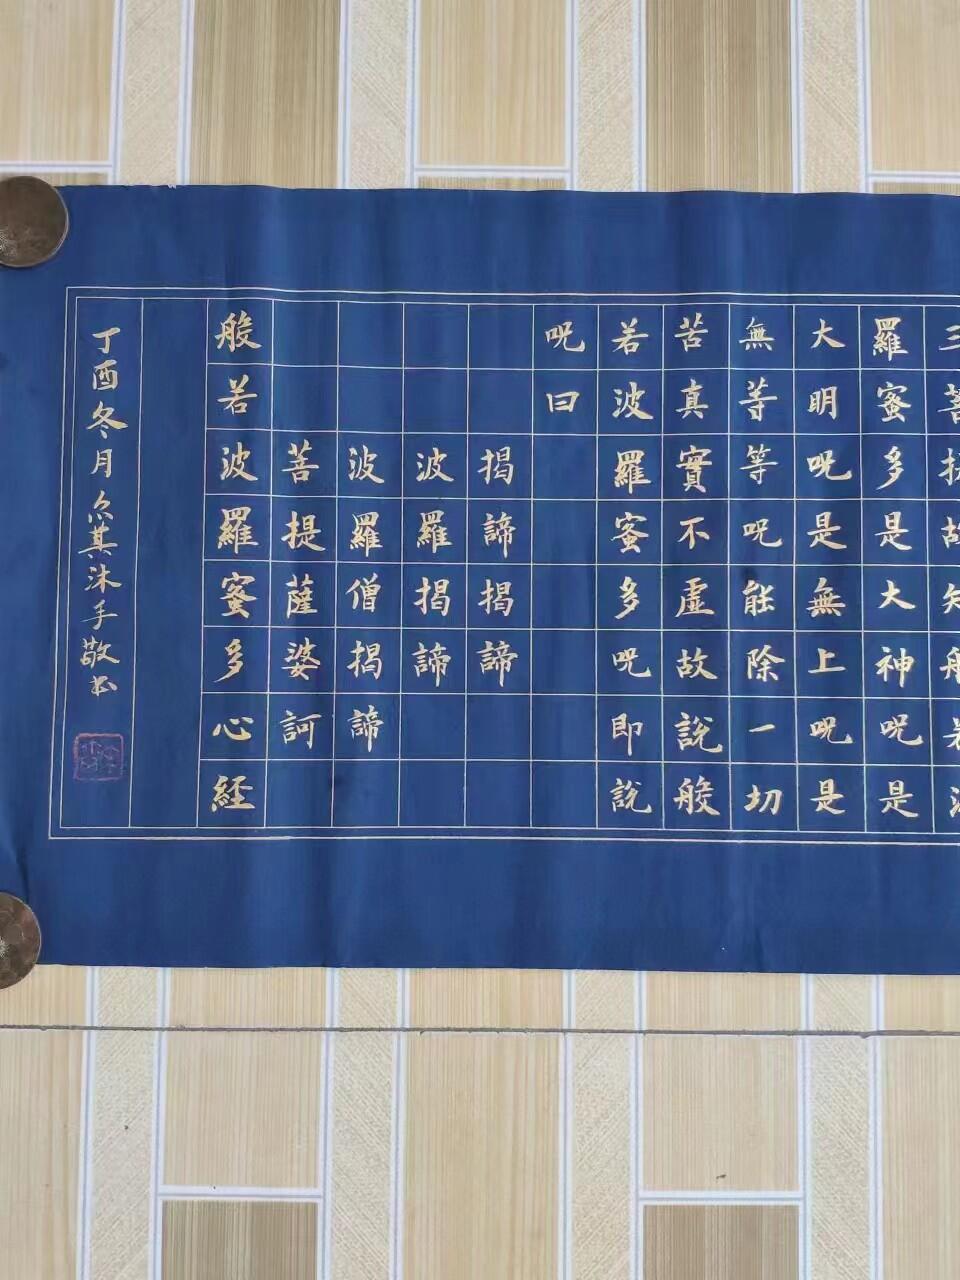 三菩提故知般若波
羅蜜多是大神呪是
大明呪是無上呪是
無等等呪能除一切
苦真實不虛故說般
若波羅蜜多呪即說
呪曰
揭諦揭諦
波羅揭諦
波羅僧揭諦
菩提薩婆訶
般若波羅蜜多心經
丁酉冬月尒其沐手敬书